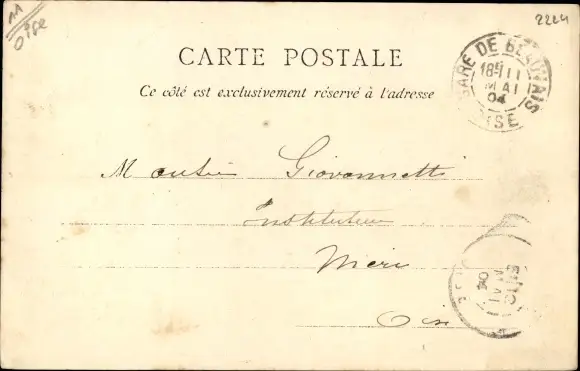 11
Oise
2224
CARTE POSTALE
Ce côté est exclusivement réservé à l'adresse
GARE DE BEAUVAIS
18 11
MAI
04
OISE
Monsieur Giovannetti
Instituteur
Méru
Oise
MAI
04